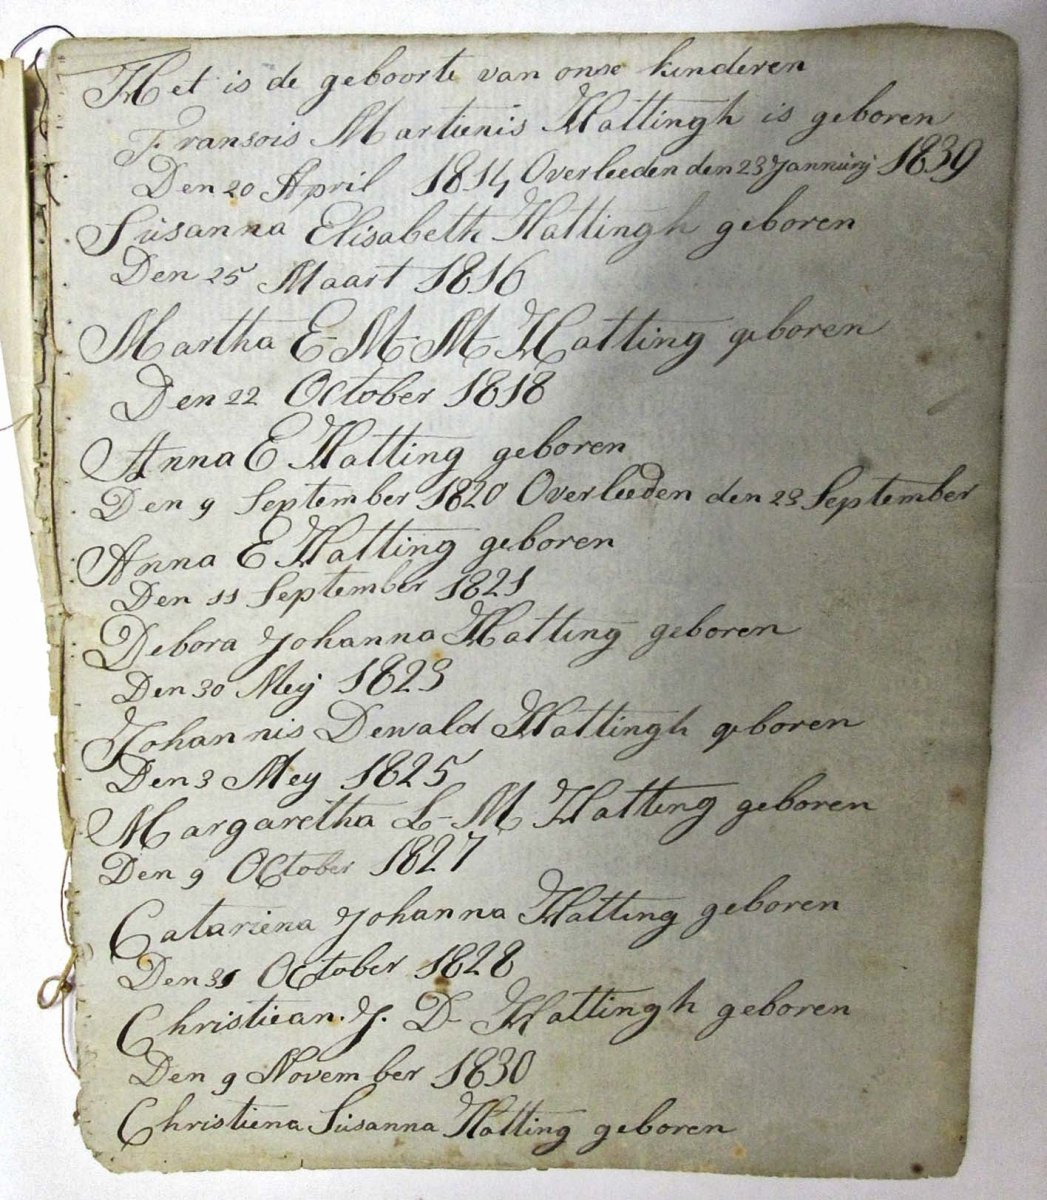 Het is de geboorte van onse kinderen
Fransois Martienis Hattingh is geboren
Den 20 April 1814 Overleeden den 23 Jannúrij 1839
Súsanna Elisabeth Hattingh geboren
Den 25 Maart 1816
Martha E-M-M Hatting geboren
Den 22 October 1818
Anna E Hatting geboren
Den 9 September 1820 Overleeden den 23 September
Anna E Hatting geboren
Den 11 September 1821
Debora Johanna Hatting geboren
Den 30 Meij 1823
Johannis Dewald Hattingh geboren
Den 3 Mey 1825
Margaretha L-M Hatting geboren
Den 9 October 1827
Catariena Johanna Hatting geboren
Den 31 October 1828
Christiean. J. D- Hattingh geboren
Den 9 November 1830
Christiena Súsanna Hatting geboren